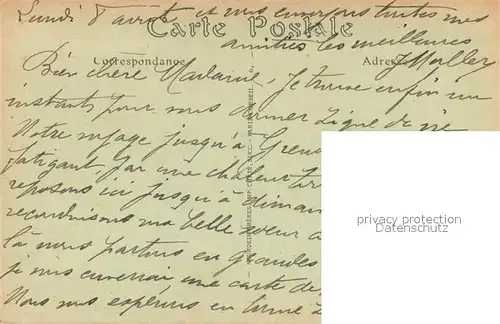 Lundi 8 août et nous envoyons toutes nos
Carte Postale
amitiés les meilleures
J Muller
Correspondance
Adresse
Bien chère Madame, Je trouve enfin un
instant pour vous donner signe de vie
Notre voyage jusqu'à Greno
fatigant, par une chaleur
reposons ici jusqu'à diman
reconduisons ma belle sœur à
là nous partons en grandes
je vous enverrai une carte de
Nous vous espérons en bonne
privacy protection